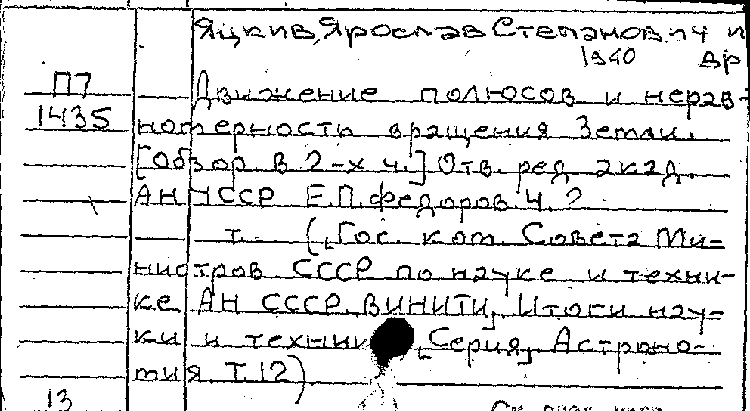 Яцкив, Ярослав Степанович и
1940 др
П7
1435
Движение полюсов и нерав-
номерность вращения Земли.
[Обзор в 2-х ч.] Отв. ред. акад.
АН УССР Е.П. Федоров. Ч. 2
т. ([Гос. ком. Совета Ми-
нистров СССР по науке и техни-
ке АН СССР. ВИНИТИ], Итоги нау-
ки и техники [Серия] Астроно-
мия Т. 12)
13